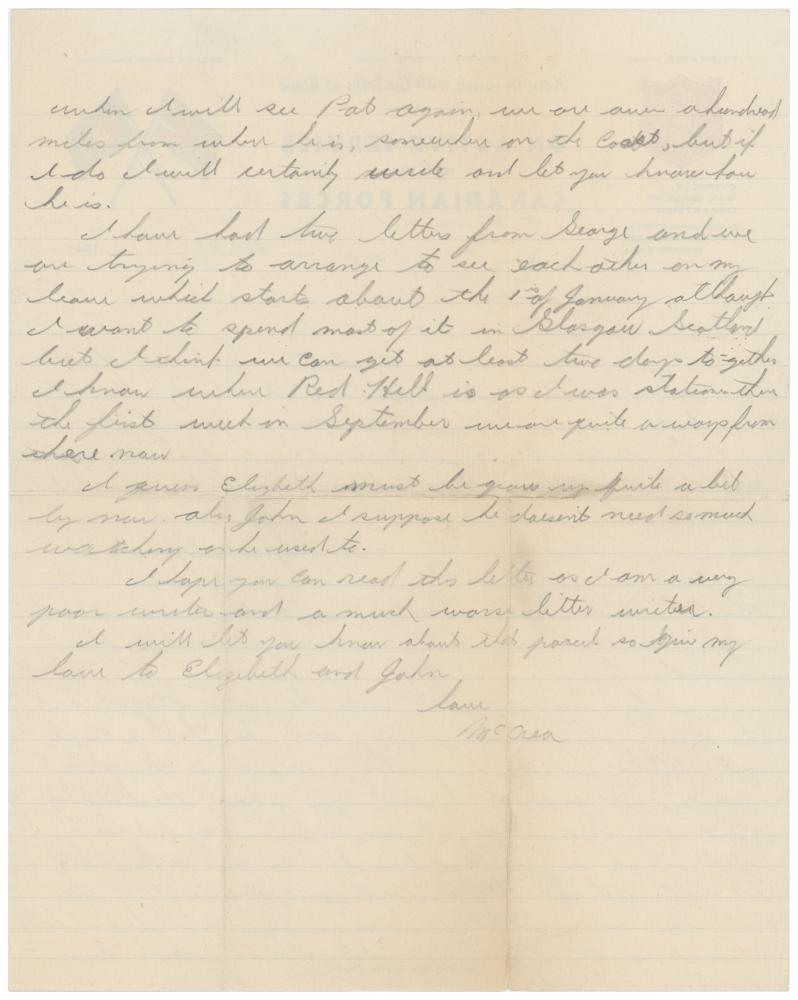 when I will see Pat again, we are over a hundred
miles from where he is, somewhere on the Coast, but if
I do I will certainly write and let you know how
he is.
I have had two letters from George and we
are trying to arrange to see each other on my
leave which starts about the 1st of January although
I want to spend most of it in Glasgow Scotland
but I think we can get at least two days to-gether
I know where Red Hill is as I was station then
the first week in September we are quite a ways from
there now
I guess Elizibeth must be grow up quite a bit
by now. also John I suppose he doesen't need so much
watching as he used to.
I hope you can read this letter as I am a very
poor writer and a much worse letter writer.
I will let you know about that parcel so give my
love to Elizibeth and John
love
McCrea